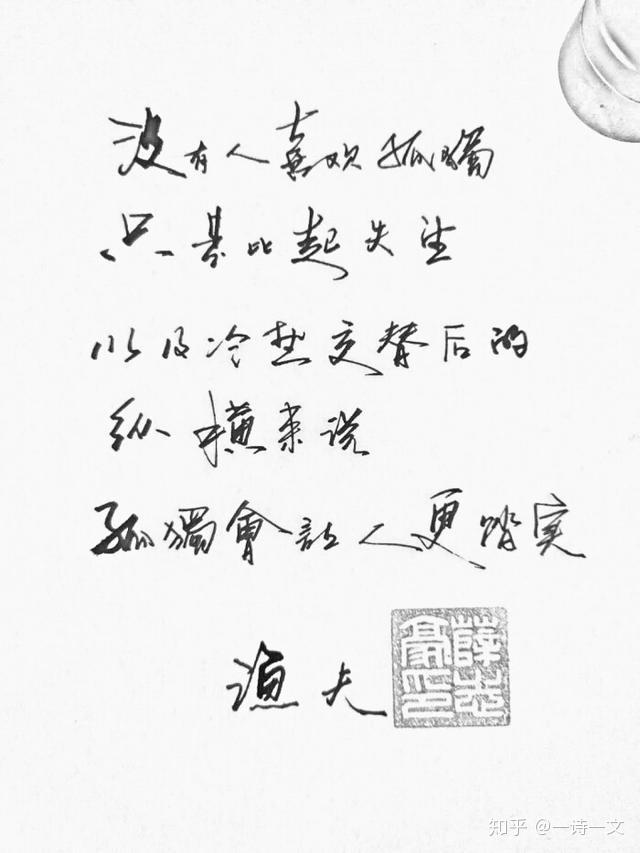 没有人喜欢孤獨
只是比起失望
以及冷热交替后的
纵横来说
孤獨會让人更踏实
渔夫
知乎 @一诗一文